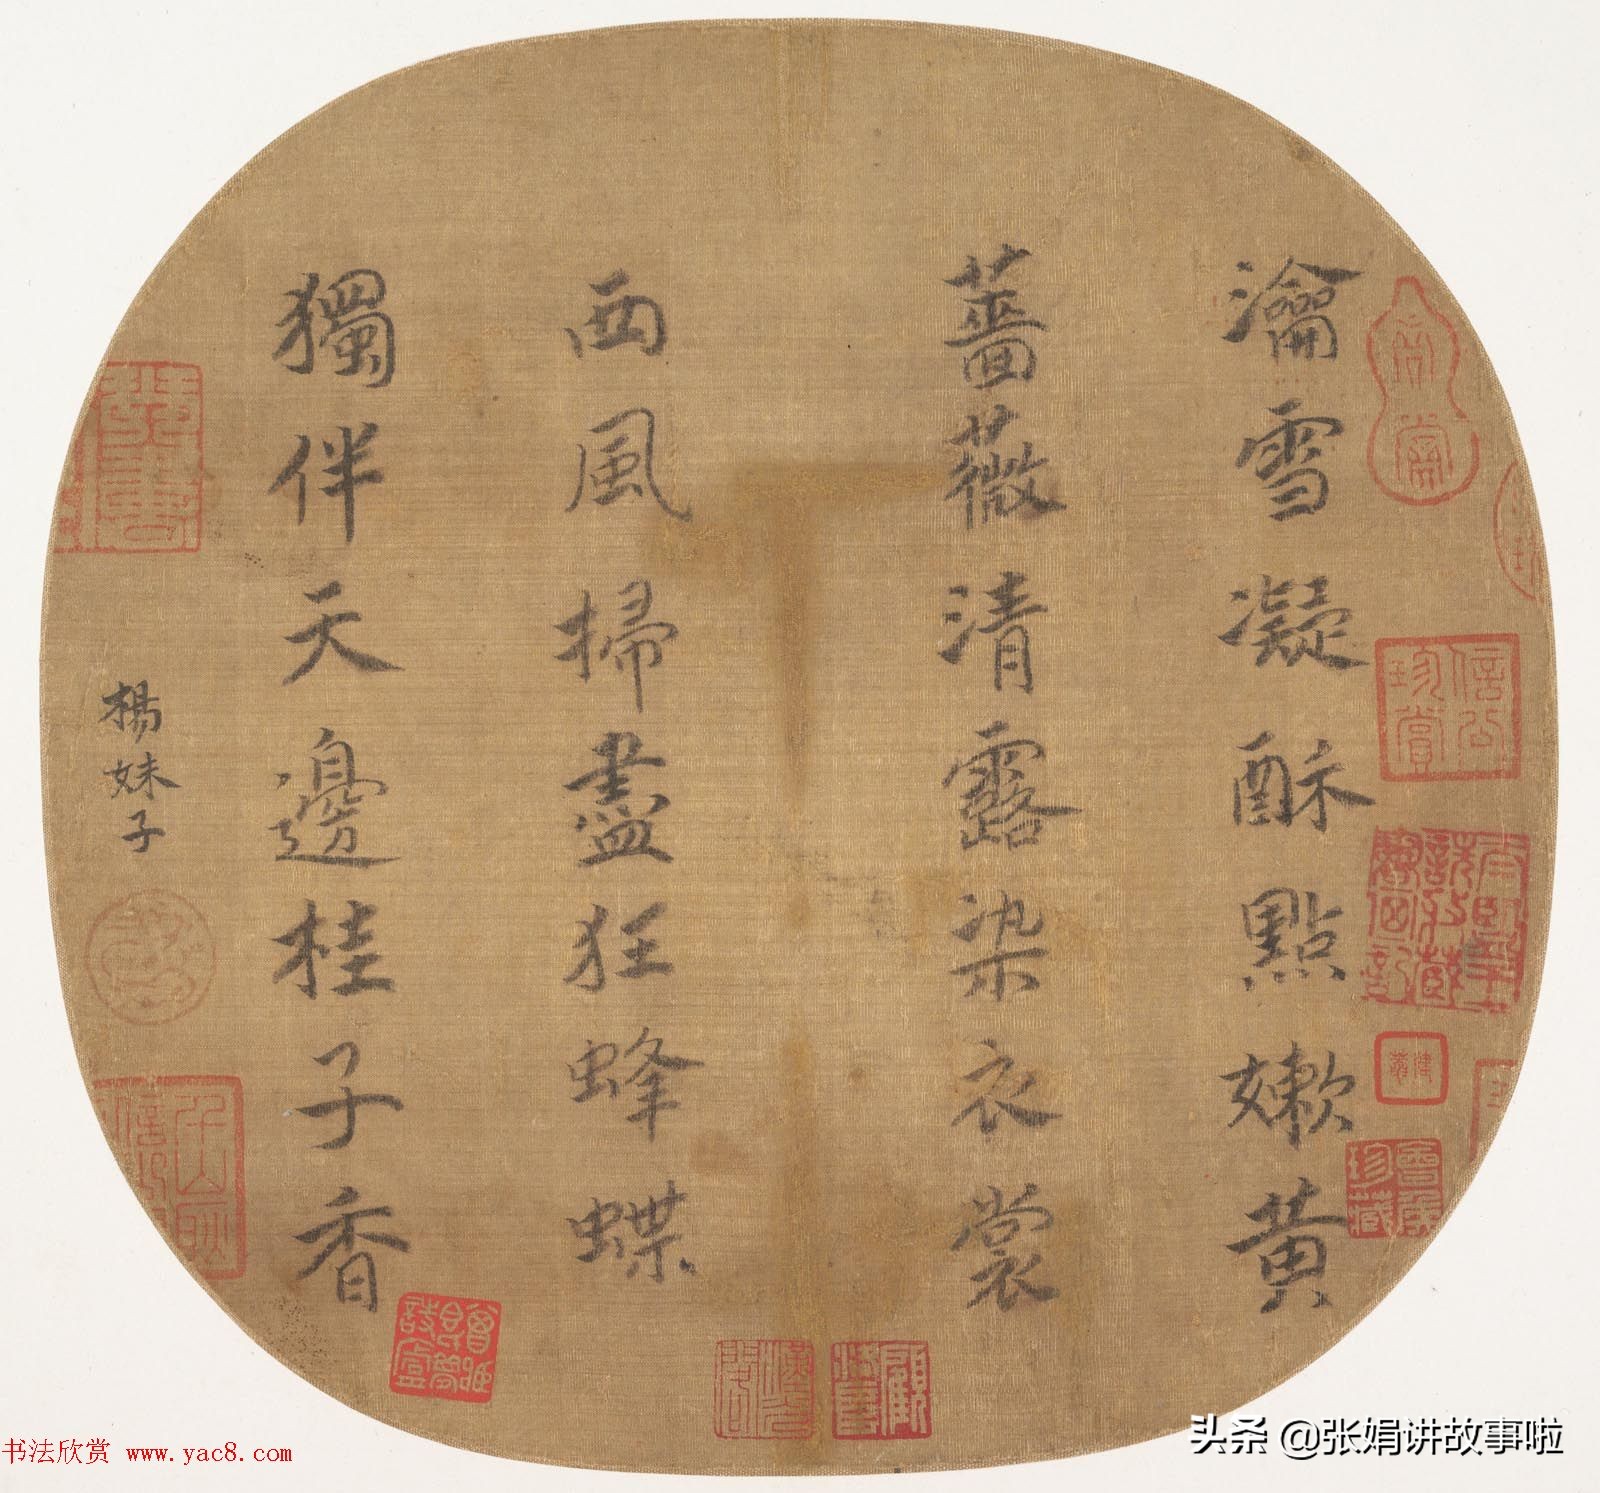 瀹雪凝酥點嫩黃
薔薇清露染衣裳
西風掃盡狂蜂蝶
獨伴天邊桂子香
楊妹子
信公珍賞
珍藏
书法欣赏 www.yac8.com
头条 @张娟讲故事啦